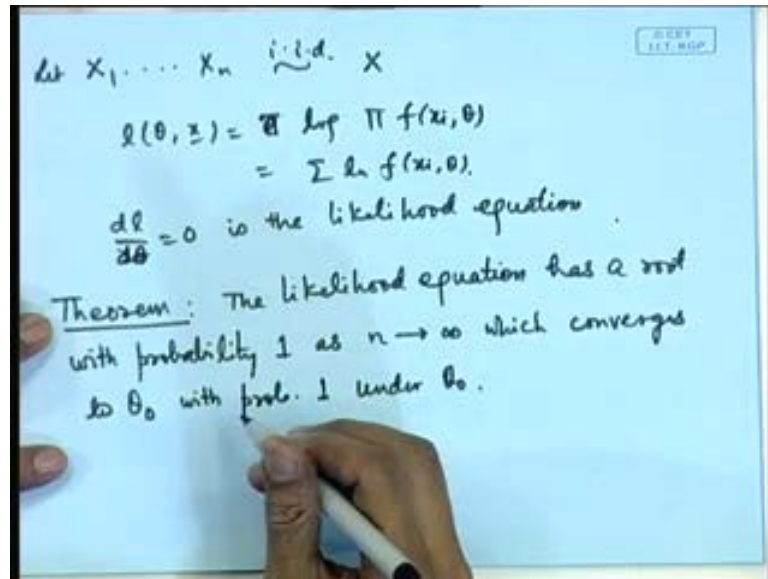 © CET
I.I.T. KGP
Let X₁ . . . . Xₙ i.i.d. ~ X
l(θ, x) = log Π f(xi, θ)
= Σ ln f(xi, θ).
dl/dθ = 0 is the likelihood equation .
Theorem : The likelihood equation has a root
with probability 1 as n → ∞ which converges
to θ₀ with prob. 1 under θ₀ .